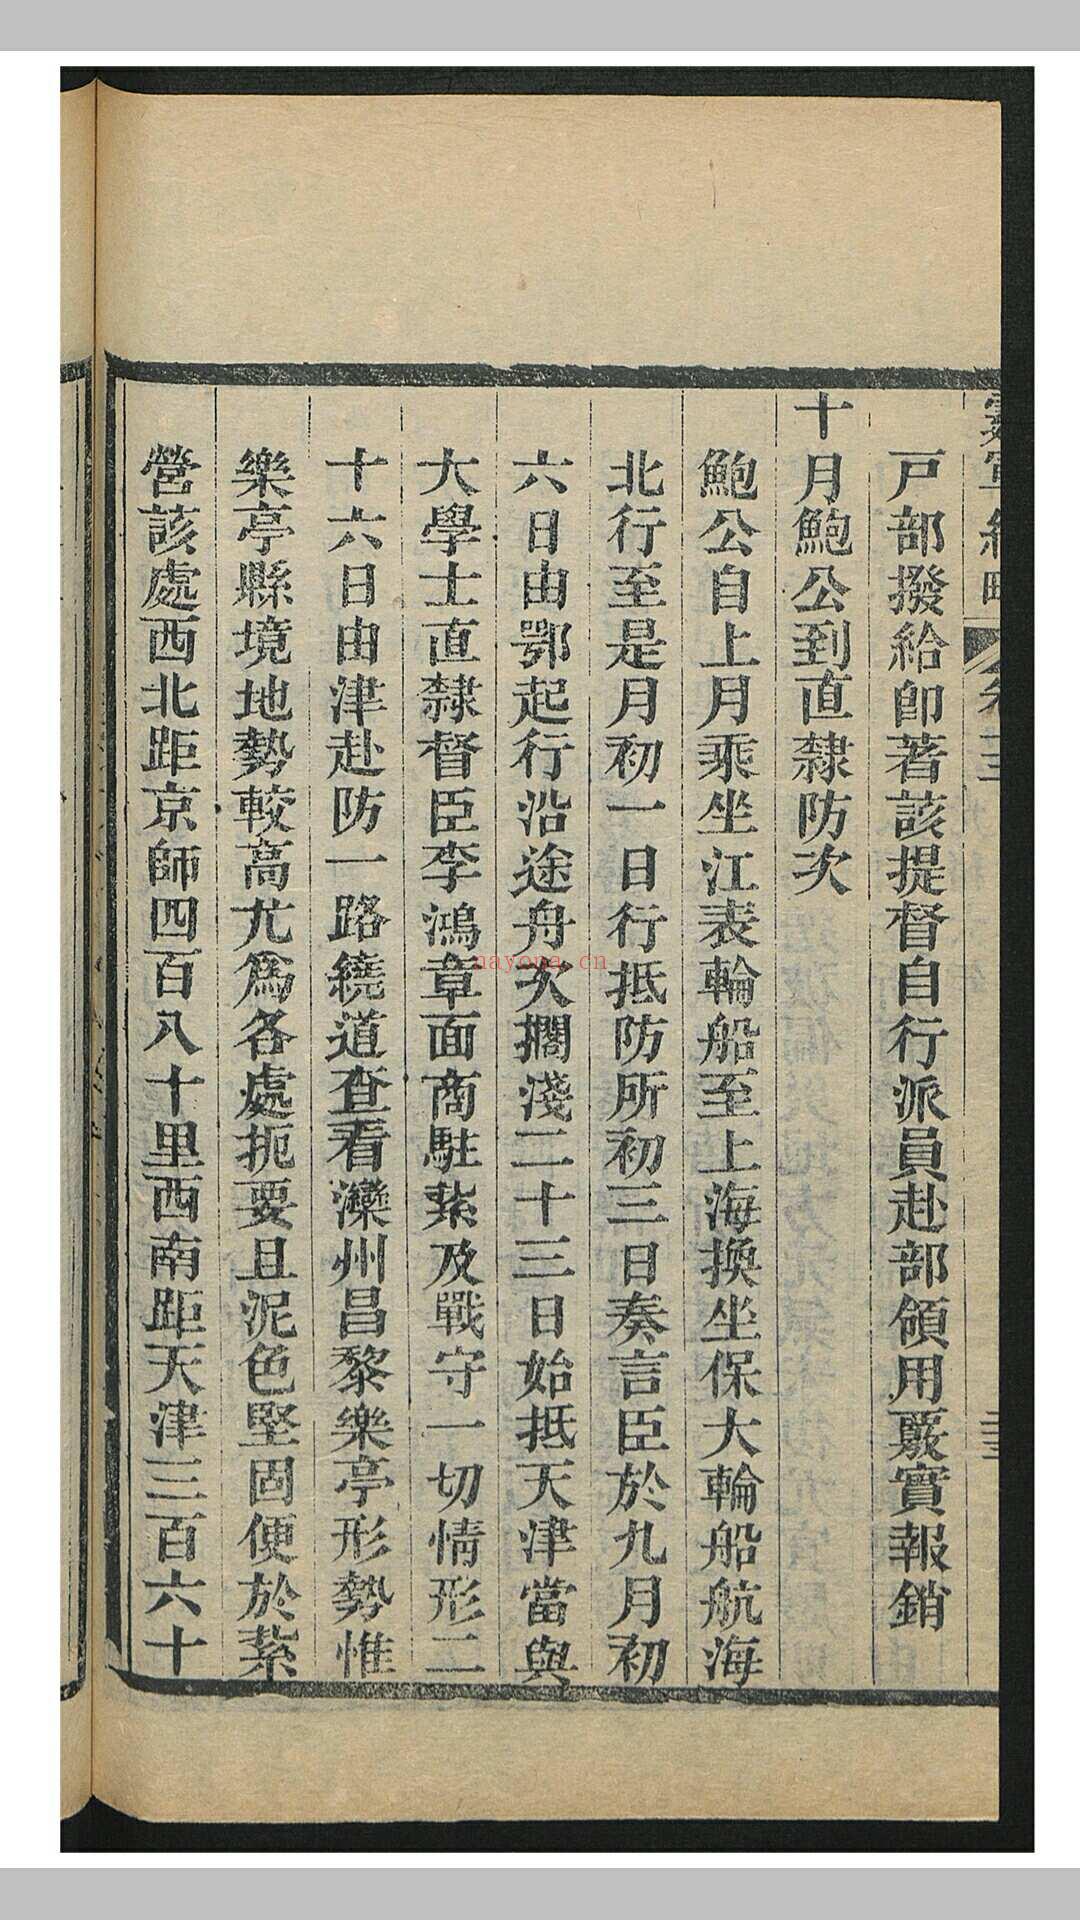 霆軍紀略 卷十三
戸部撥給卽著該提督自行派員赴部領用覈實報銷
十月鮑公到直隸防次
鮑公自上月乘坐江表輪船至上海換坐保大輪船航海
北行至是月初一日行抵防所初三日奏言臣於九月初
六日由鄂起行沿途舟次擱淺二十三日始抵天津當與
大學士直隸督臣李鴻章面商駐紮及戰守一切情形二
十六日由津赴防一路繞道查看灤州昌黎樂亭形勢惟
樂亭縣境地勢較高尤爲各處扼要且泥色堅固便於紮
營該處西北距京師四百八十里西南距天津三百六十
nayona.cn